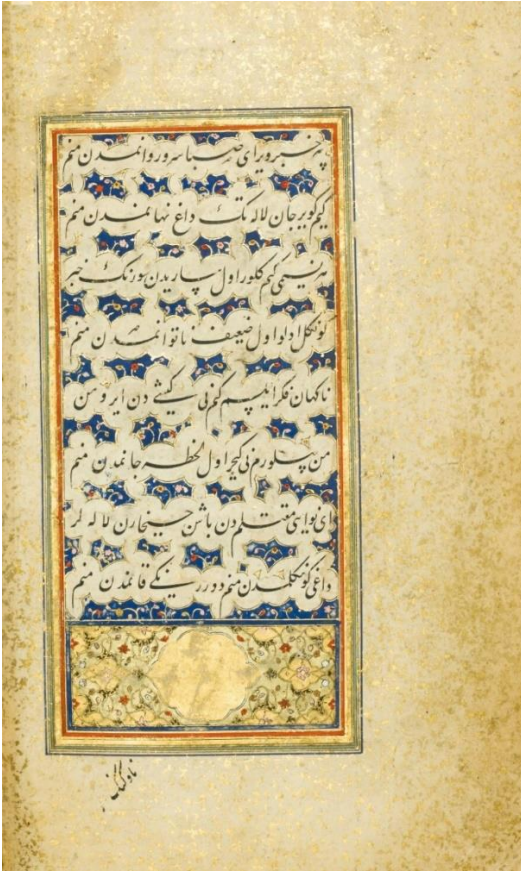 نه خبر ویر ای صبا سرو روانمدن منم
کیم کویر جان لاله تک داغ نهانمدن منم
هر نسیمی کیم کلور اول ساریدن سورنک خبر
کونکل اولوا اول ضعیف ناتوانمدن منم
ناکهان فکر ایلسم کم نی کیشی دن ایرو من
من بیلورم نی کیجر اول لحظه جانمدن منم
ای نوایی مقتلم دن باش جیقارن لاله لر
داغی کونکلمدن منم دور رنکی قانمدن منم
ناوکنک